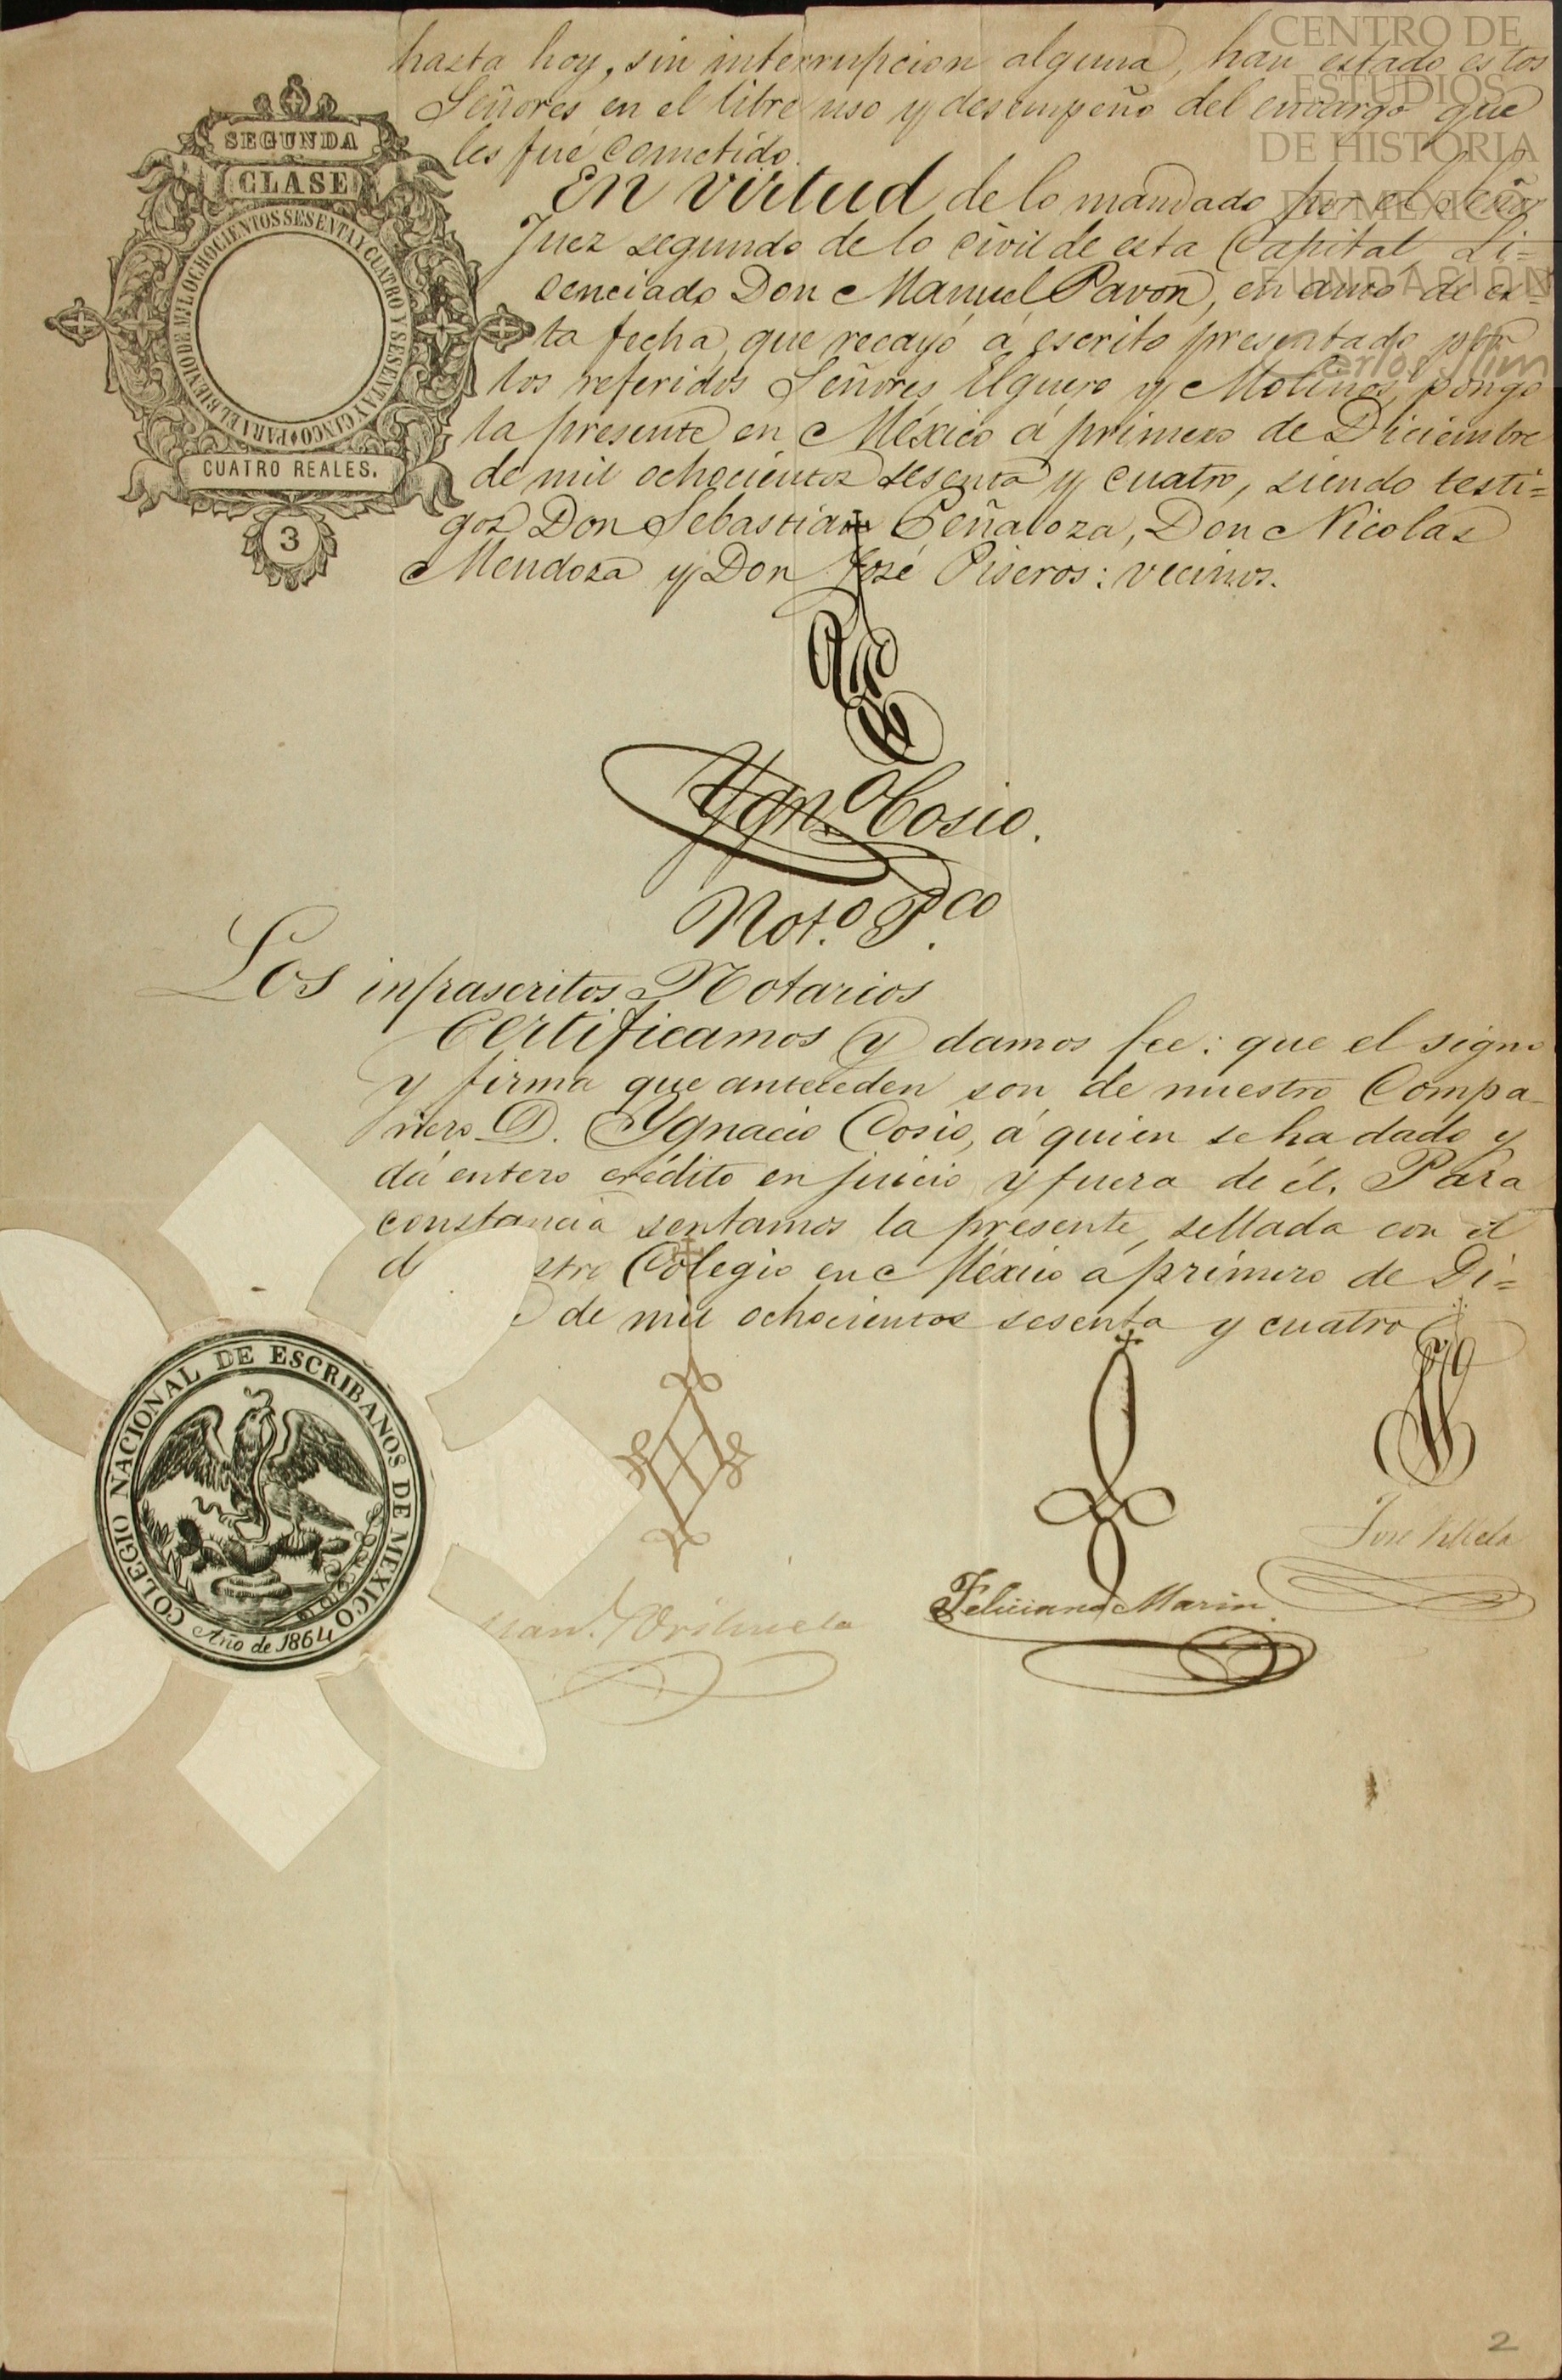 CENTRO DE
ESTUDIOS
DE HISTORIA
DE MEXICO
FUNDACION
Carlos Slim
SEGUNDA
CLASE
PARA EL BIENIO DE MIL OCHOCIENTOS SESENTA Y CUATRO Y SESENTA Y CINCO
CUATRO REALES.
3
hasta hoy, sin interrupcion alguna, han estado estos
Señores en el libre uso y desempeño del encargo que
les fué cometido.
En virtud de lo mandado por el Señor
Juez segundo de lo civil de esta Capital Li=
cenciado Don Manuel Pavon, en auto de es=
ta fecha, que recayó á escrito presentado por
los referidos Señores Elguero y Molinos, pongo
la presente en México á primero de Diciembre
de mil ochocientos sesenta y cuatro, siendo testi=
gos Don Sebastian Peñaloza, Don Nicolas
Mendoza y Don José Piseros: vecinos.
Ygn.o Cosio.
Not.o P.co
Los infrascritos Notarios
Certificamos y damos fee: que el signo
y firma que anteceden son de nuestro Compa-
ñero D. Ygnacio Cosio, á quien se ha dado y
dá entero crédito en juicio y fuera de él. Para
constancia sentamos la presente, sellada con el
d stro Colegio en México á primero de Di=
de mil ochocientos sesenta y cuatro
COLEGIO NACIONAL DE ESCRIBANOS DE MEXICO
Año de 1864
Orihuela
Feliciano Marin.
José Villela
2